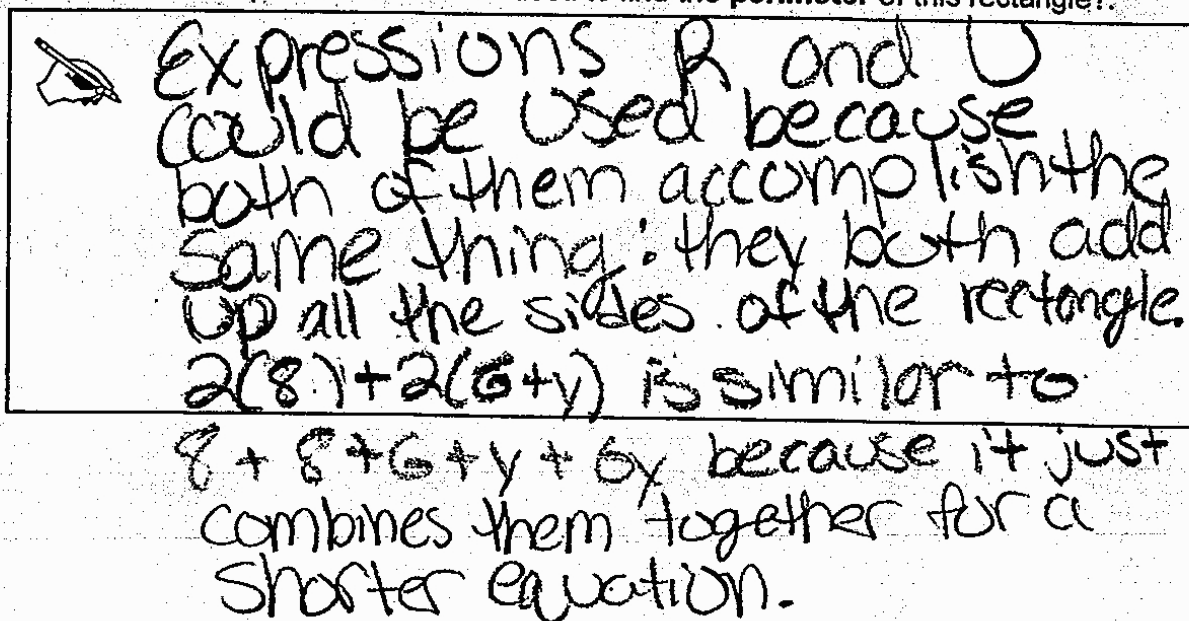 perimeter of this rectangle?.
Expressions R and U
could be used because
both of them accomplish the
same thing: they both add
up all the sides of the rectangle.
2(8)+2(6+y) is similar to
8 + 8 + 6 + y + 6y because it just
combines them together for a
shorter equation.